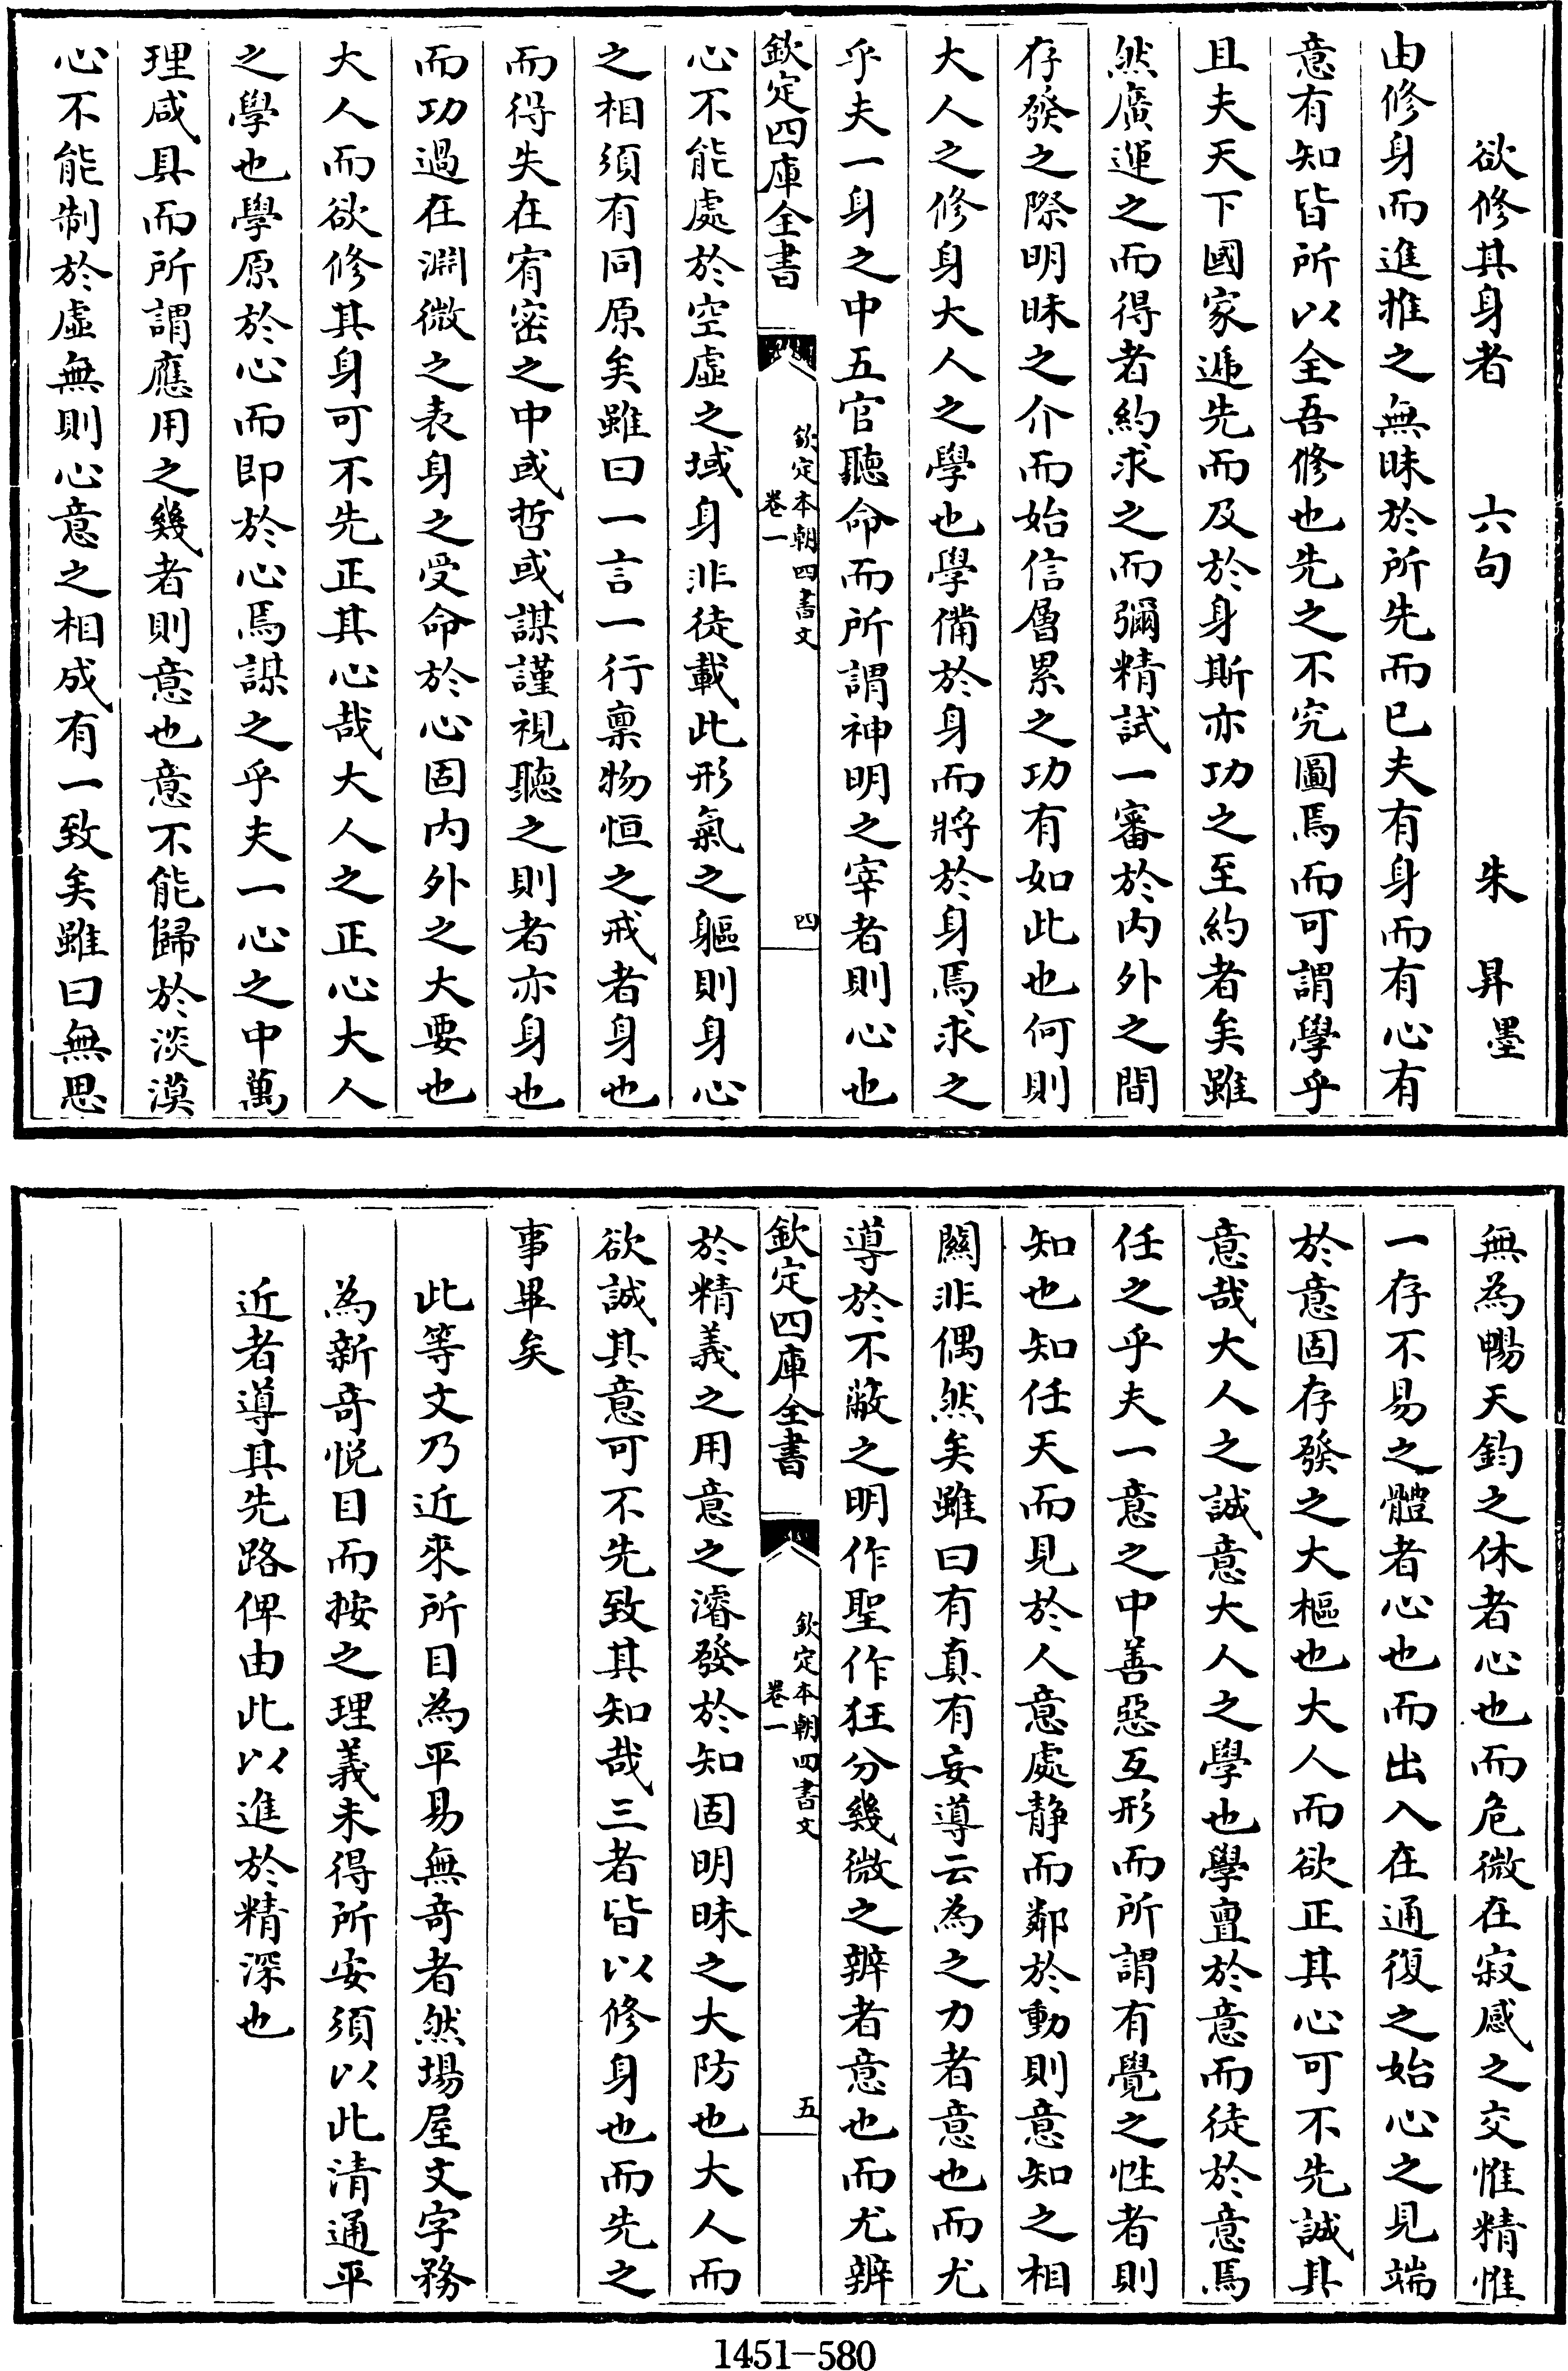 欲修其身者　六句　朱　昇　墨
由修身而進推之無昧於所先而已夫有身而有心有
意有知皆所以全吾修也先之不究圖焉而可謂學乎
且夫天下國家遞先而及於身斯亦功之至約者矣雖
然廣運之而得者約求之而彌精試一審於內外之間
存發之際明昧之介而始信層累之功有如此也何則
大人之修身大人之學也學備於身而將於身焉求之
乎夫一身之中五官聽命而所謂神明之宰者則心也
欽定四庫全書　欽定本朝四書文　卷一　四
心不能處於空虛之域身非徒載此形氣之軀則身心
之相須有同原矣雖曰一言一行稟物恒之戒者身也
而得失在宥密之中或哲或謀謹視聽之則者亦身也
而功過在淵微之表身之受命於心固内外之大要也
大人而欲修其身可不先正其心哉大人之正心大人
之學也學原於心而即於心焉謀之乎夫一心之中萬
理咸具而所謂應用之幾者則意也意不能歸於淡漠
心不能制於虛無則心意之相成有一致矣雖曰無思
無為暢天鈞之休者心也而危微在寂感之交惟精惟
一存不易之體者心也而出入在通復之始心之見端
於意固存發之大樞也大人而欲正其心可不先誠其
意哉大人之誠意大人之學也學亶於意而徒於意焉
任之乎夫一意之中善惡互形而所謂有覺之性者則
知也知任天而見於人意處静而鄰於動則意知之相
關非偶然矣雖曰有真有妄導云為之力者意也而尤
導於不蔽之明作聖作狂分幾微之辨者意也而尤辨
欽定四庫全書　欽定本朝四書文　卷一　五
於精義之用意之濬發於知固明昧之大防也大人而
欲誠其意可不先致其知哉三者皆以修身也而先之
事畢矣
此等文乃近來所目為平易無奇者然場屋文字務
為新奇悅目而按之理義未得所安須以此清通平
近者導其先路俾由此以進於精深也
1451-580